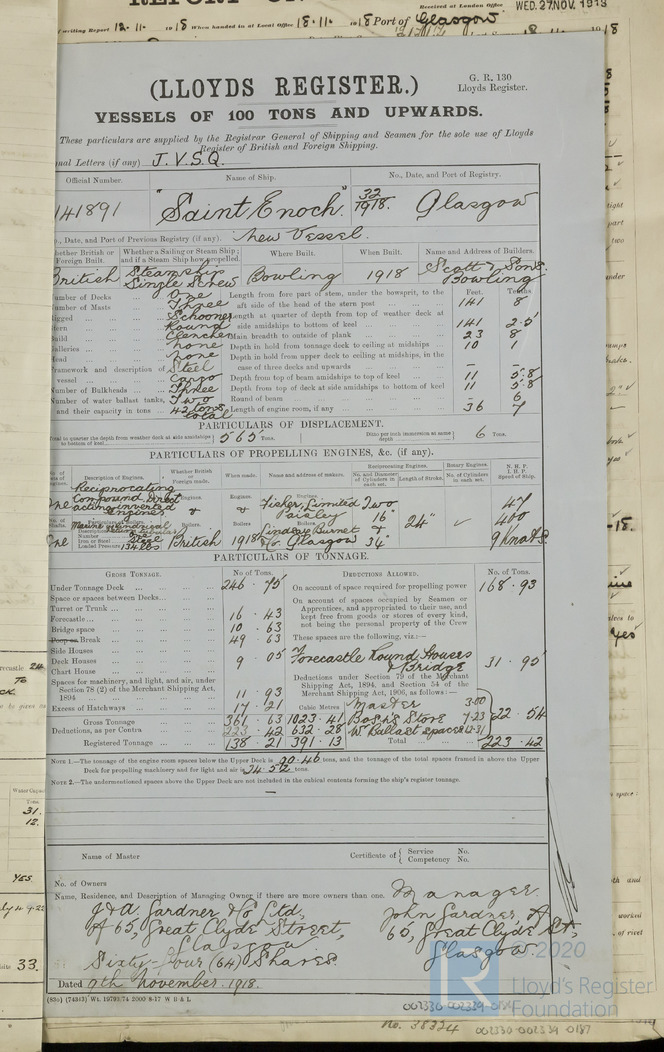 Received at London Office WED. 27 NOV. 1918
writing Report 12.11. 1918 When handed in at Local Office 18.11. 1918 Port of Glasgow
(LLOYDS REGISTER.)
G. R. 130
Lloyds Register.
VESSELS OF 100 TONS AND UPWARDS.
These particulars are supplied by the Registrar General of Shipping and Seamen for the sole use of Lloyds
Register of British and Foreign Shipping.
nal Letters (if any) J.V.S.Q.
Official Number. Name of Ship. No., Date, and Port of Registry.
141891 "Saint Enoch." 32/1918. Glasgow
o., Date, and Port of Previous Registry (if any). New Vessel.
hether British or Foreign Built. Whether a Sailing or Steam Ship; and if a Steam Ship how propelled. Where Built. When Built. Name and Address of Builders.
British Steamship Single Screw Bowling 1918 Scott & Sons. Bowling
Feet. Tenths
umber of Decks ... One
umber of Masts ... Three
igged ... Schooner
tern ... Round
uild ... Clencher
alleries ... none
ead ... none
ramework and description of vessel ... Steel Cargo
umber of Bulkheads ... Three
umber of water ballast tanks, and their capacity in tons ... Two 42 tons total
Length from fore part of stem, under the bowsprit, to the aft side of the head of the stern post 141 8
Length at quarter of depth from top of weather deck at side amidships to bottom of keel 141 2.5
Main breadth to outside of plank 23 8
Depth in hold from tonnage deck to ceiling at midships 10 1
Depth in hold from upper deck to ceiling at midships, in the case of three decks and upwards —
Depth from top of beam amidships to top of keel 11 5.8
Depth from top of deck at side amidships to bottom of keel 11 5.8
Round of beam - 6
Length of engine room, if any 36 7
PARTICULARS OF DISPLACEMENT.
Total to quarter the depth from weather deck at side amidships to bottom of keel 565 Tons. Ditto per inch immersion at same depth 6 Tons.
PARTICULARS OF PROPELLING ENGINES, &c. (if any).
Description of Engines. Whether British or Foreign made. When made. Name and address of makers. Reciprocating Engines. No. and Diameter of Cylinders in each set. Length of Stroke. Rotary Engines. No. of Cylinders in each set. N. H. P. I. H. P. Speed of Ship.
Reciprocating
Compound, Direct
acting inverted
engines
Engines Fisher, Limited Paisley Two 16" 47
Boilers
Number
Iron or Steel Steel
Loaded Pressure 134 lbs
British 1918 Lindsay Burnet & Co. Glasgow 34" 24" 400
9 knots
PARTICULARS OF TONNAGE.
GROSS TONNAGE. No. of Tons. DEDUCTIONS ALLOWED. No. of Tons.
Under Tonnage Deck 246 . 75
Space or spaces between Decks
Turret or Trunk
Forecastle 16 . 43
Bridge space 10 . 63
Poop or Break 49 . 63
Side Houses
Deck Houses 9 . 05
Chart House
Spaces for machinery, and light, and air, under Section 78 (2) of the Merchant Shipping Act, 1894 11 . 93
Excess of Hatchways 17 . 21
Gross Tonnage 361 . 63 1023 . 41
Deductions, as per Contra 223 . 42 632 . 28
Registered Tonnage 138 . 21 391 . 13
Cubic Metres
On account of space required for propelling power 168 . 93
On account of spaces occupied by Seamen or Apprentices, and appropriated to their use, and kept free from goods or stores of every kind, not being the personal property of the Crew
These spaces are the following, viz.:—
Forecastle Round Houses & Bridge 31 . 95
Deductions under Section 79 of the Merchant Shipping Act, 1894, and Section 54 of the Merchant Shipping Act, 1906, as follows:—
Master 3.00
Bosn's Store 7.23
W Ballast spaces 12.31
22 . 54
Total 223 . 42
NOTE 1.—The tonnage of the engine room spaces below the Upper Deck is 90.46 tons, and the tonnage of the total spaces framed in above the Upper
Deck for propelling machinery and for light and air is 34.52 tons.
NOTE 2.—The undermentioned spaces above the Upper Deck are not included in the cubical contents forming the ship's register tonnage.
Name of Master Certificate of { Service No. Competency No.
No. of Owners
Name, Residence, and Description of Managing Owner if there are more owners than one. Manager
J & A. Gardner & Co Ltd,
of 65, Great Clyde Street,
Glasgow
Sixty-four (64) Shares
John Gardner, of
65, Great Clyde St,
Glasgow
Dated 9th November. 1918.
(830) (74343) Wt. 19793/74 2000 8-17 W B & L
© 2020
Lloyd's Register
Foundation
002330-002339-0187
No. 38324
002330-002339-0187